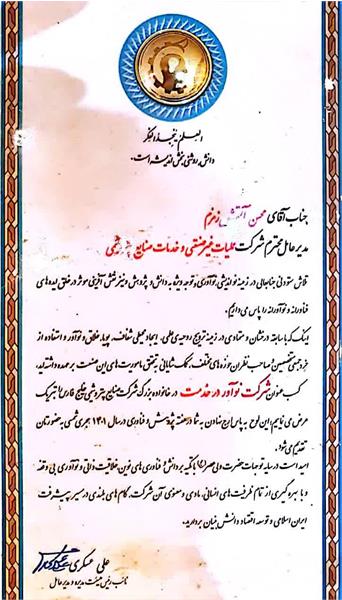 العلم ینجد الفکر
دانش، روشنی بخش اندیشه است.
جناب آقای محسن زمزم
مدیر عامل محترم شرکت عملیات غیر صنعتی و خدمات صنایع پتروشیمی
تلاش ستودنی جنابعالی در زمینه نواندیشی، نوآوری، توجه ویژه به دانش و پژوهش و نیز نقش آفرینی موثر در خلق ایده های
فناورانه و نوآورانه را پاس می داریم.
اینک که با سابقه درخشان و متمادی در زمینه ترویج روحیه ی علمی، ایجاد محیطی شفاف، پویا، خلاق و نوآور و استفاده از
خرد جمعی متخصصین و صاحب نظران حوزه های مختلف، کمک شایانی به تحقق ماموریت های این صنعت بر عهده داشته اند،
کسب عنوان شرکت نوآور در خدمت در خانواده بزرگ شرکت صنایع پتروشیمی خلیج فارس را تبریک
عرض می نماییم. این لوح به پاس ارج نهادن به شما در هفته پژوهش و فناوری در سال ۱۴۰۱ هجری شمسی به حضورتان
تقدیم می شود.
امید است در سایه توجهات حضرت ولی عصر (عج) با تکیه بر دانش و فناوری های نوین، خلاقیت ذاتی و نوآوری بی وقفه
و با بهره گیری از تمام ظرفیت های انسانی، مادی و معنوی آن شرکت، گام های بلندی در مسیر پیشرفت
ایران اسلامی و توسعه اقتصاد دانش بنیان بردارید.
علی عسکری
نائب رئیس هیئت مدیره و مدیر عامل